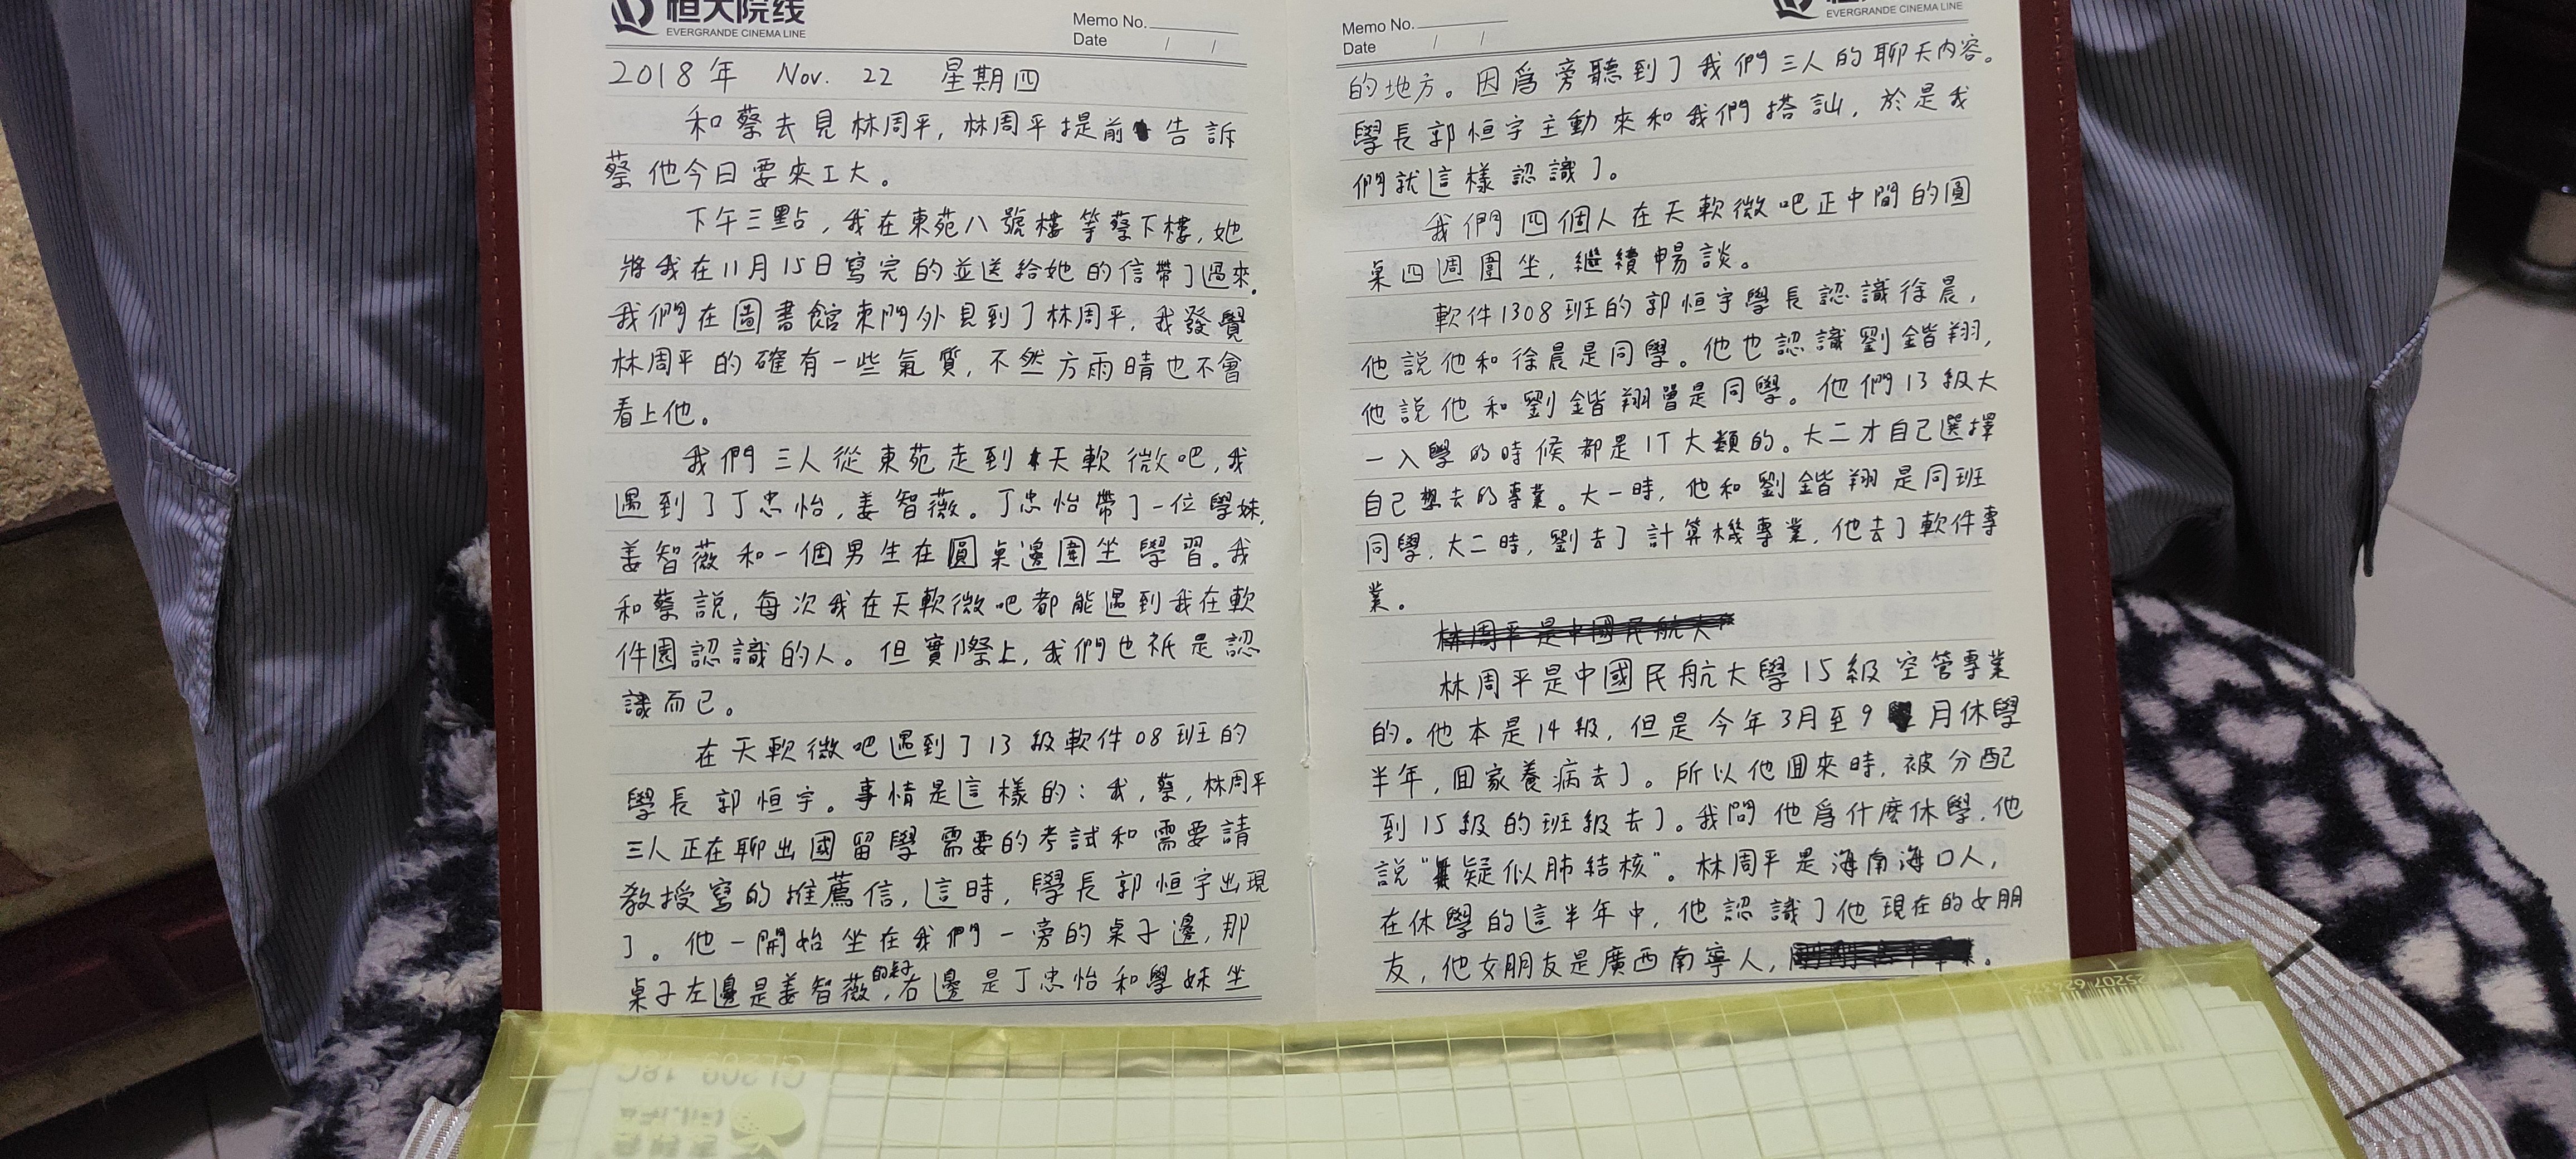 恒大院线
EVERGRANDE CINEMA LINE
Memo No.
Date / /
2018年 Nov. 22 星期四
和蔡去見林周平,林周平提前告訴
蔡他今日要來工大。
下午三點,我在東苑八號樓等蔡下樓,她
將我在11月15日寫完的並送給她的信帶了過來.
我們在圖書館東門外見到了林周平,我發覺
林周平的確有一些氣質,不然方雨晴也不會
看上他。
我們三人從東苑走到天軟微吧,我
遇到了丁忠怡,姜智薇。丁忠怡帶了一位學妹,
姜智薇和一個男生在圓桌邊圍坐學習。我
和蔡說,每次我在天軟微吧都能遇到我在軟
件園認識的人。但實際上,我們也祇是認
識而已。
在天軟微吧遇到了13級軟件08班的
學長郭恒宇。事情是這樣的:我,蔡,林周平
三人正在聊出國留學需要的考試和需要請
教授寫的推薦信,這時,學長郭恒宇出現
了。他一開始坐在我們一旁的桌子邊,那
桌子左邊是姜智薇的桌子,右邊是丁忠怡和學妹坐
EVERGRANDE CINEMA LINE
Memo No.
Date / /
的地方。因爲旁聽到了我們三人的聊天內容。
學長郭恒宇主動來和我們搭訕,於是我
們就這樣認識了。
我們四個人在天軟微吧正中間的圓
桌四週圍坐,繼續暢談。
軟件1308班的郭恒宇學長認識徐晨,
他說他和徐晨是同學。他也認識劉鍇翔,
他說他和劉鍇翔曾是同學。他們13級大
一入學的時候都是IT大類的。大二才自己選擇
自己想去的專業。大一時,他和劉鍇翔是同班
同學,大二時,劉去了計算機專業,他去了軟件專
業。
林周平是中國民航大
林周平是中國民航大學15級空管專業
的。他本是14級,但是今年3月至9月休學
半年,回家養病去了。所以他回來時,被分配
到15級的班級去了。我問他爲什麽休學,他
說“疑似肺結核”。林周平是海南海口人,
在休學的這半年中,他認識了他現在的女朋
友,他女朋友是廣西南寧人,